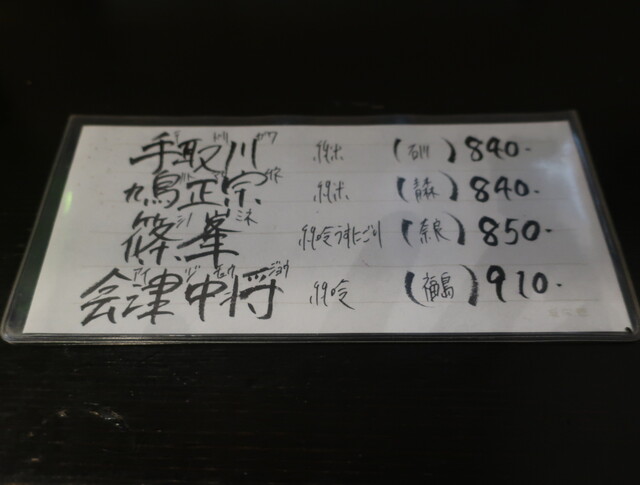 テ ドリ ガワ
手取川 純米 (石川) 840-
鳩正宗 純米 (青森) 840-
シノ ミネ
篠峯 純吟うすにごり (奈良) 850-
アイ ヅ チュウ ジョウ
会津中将 純吟 (福島) 910-